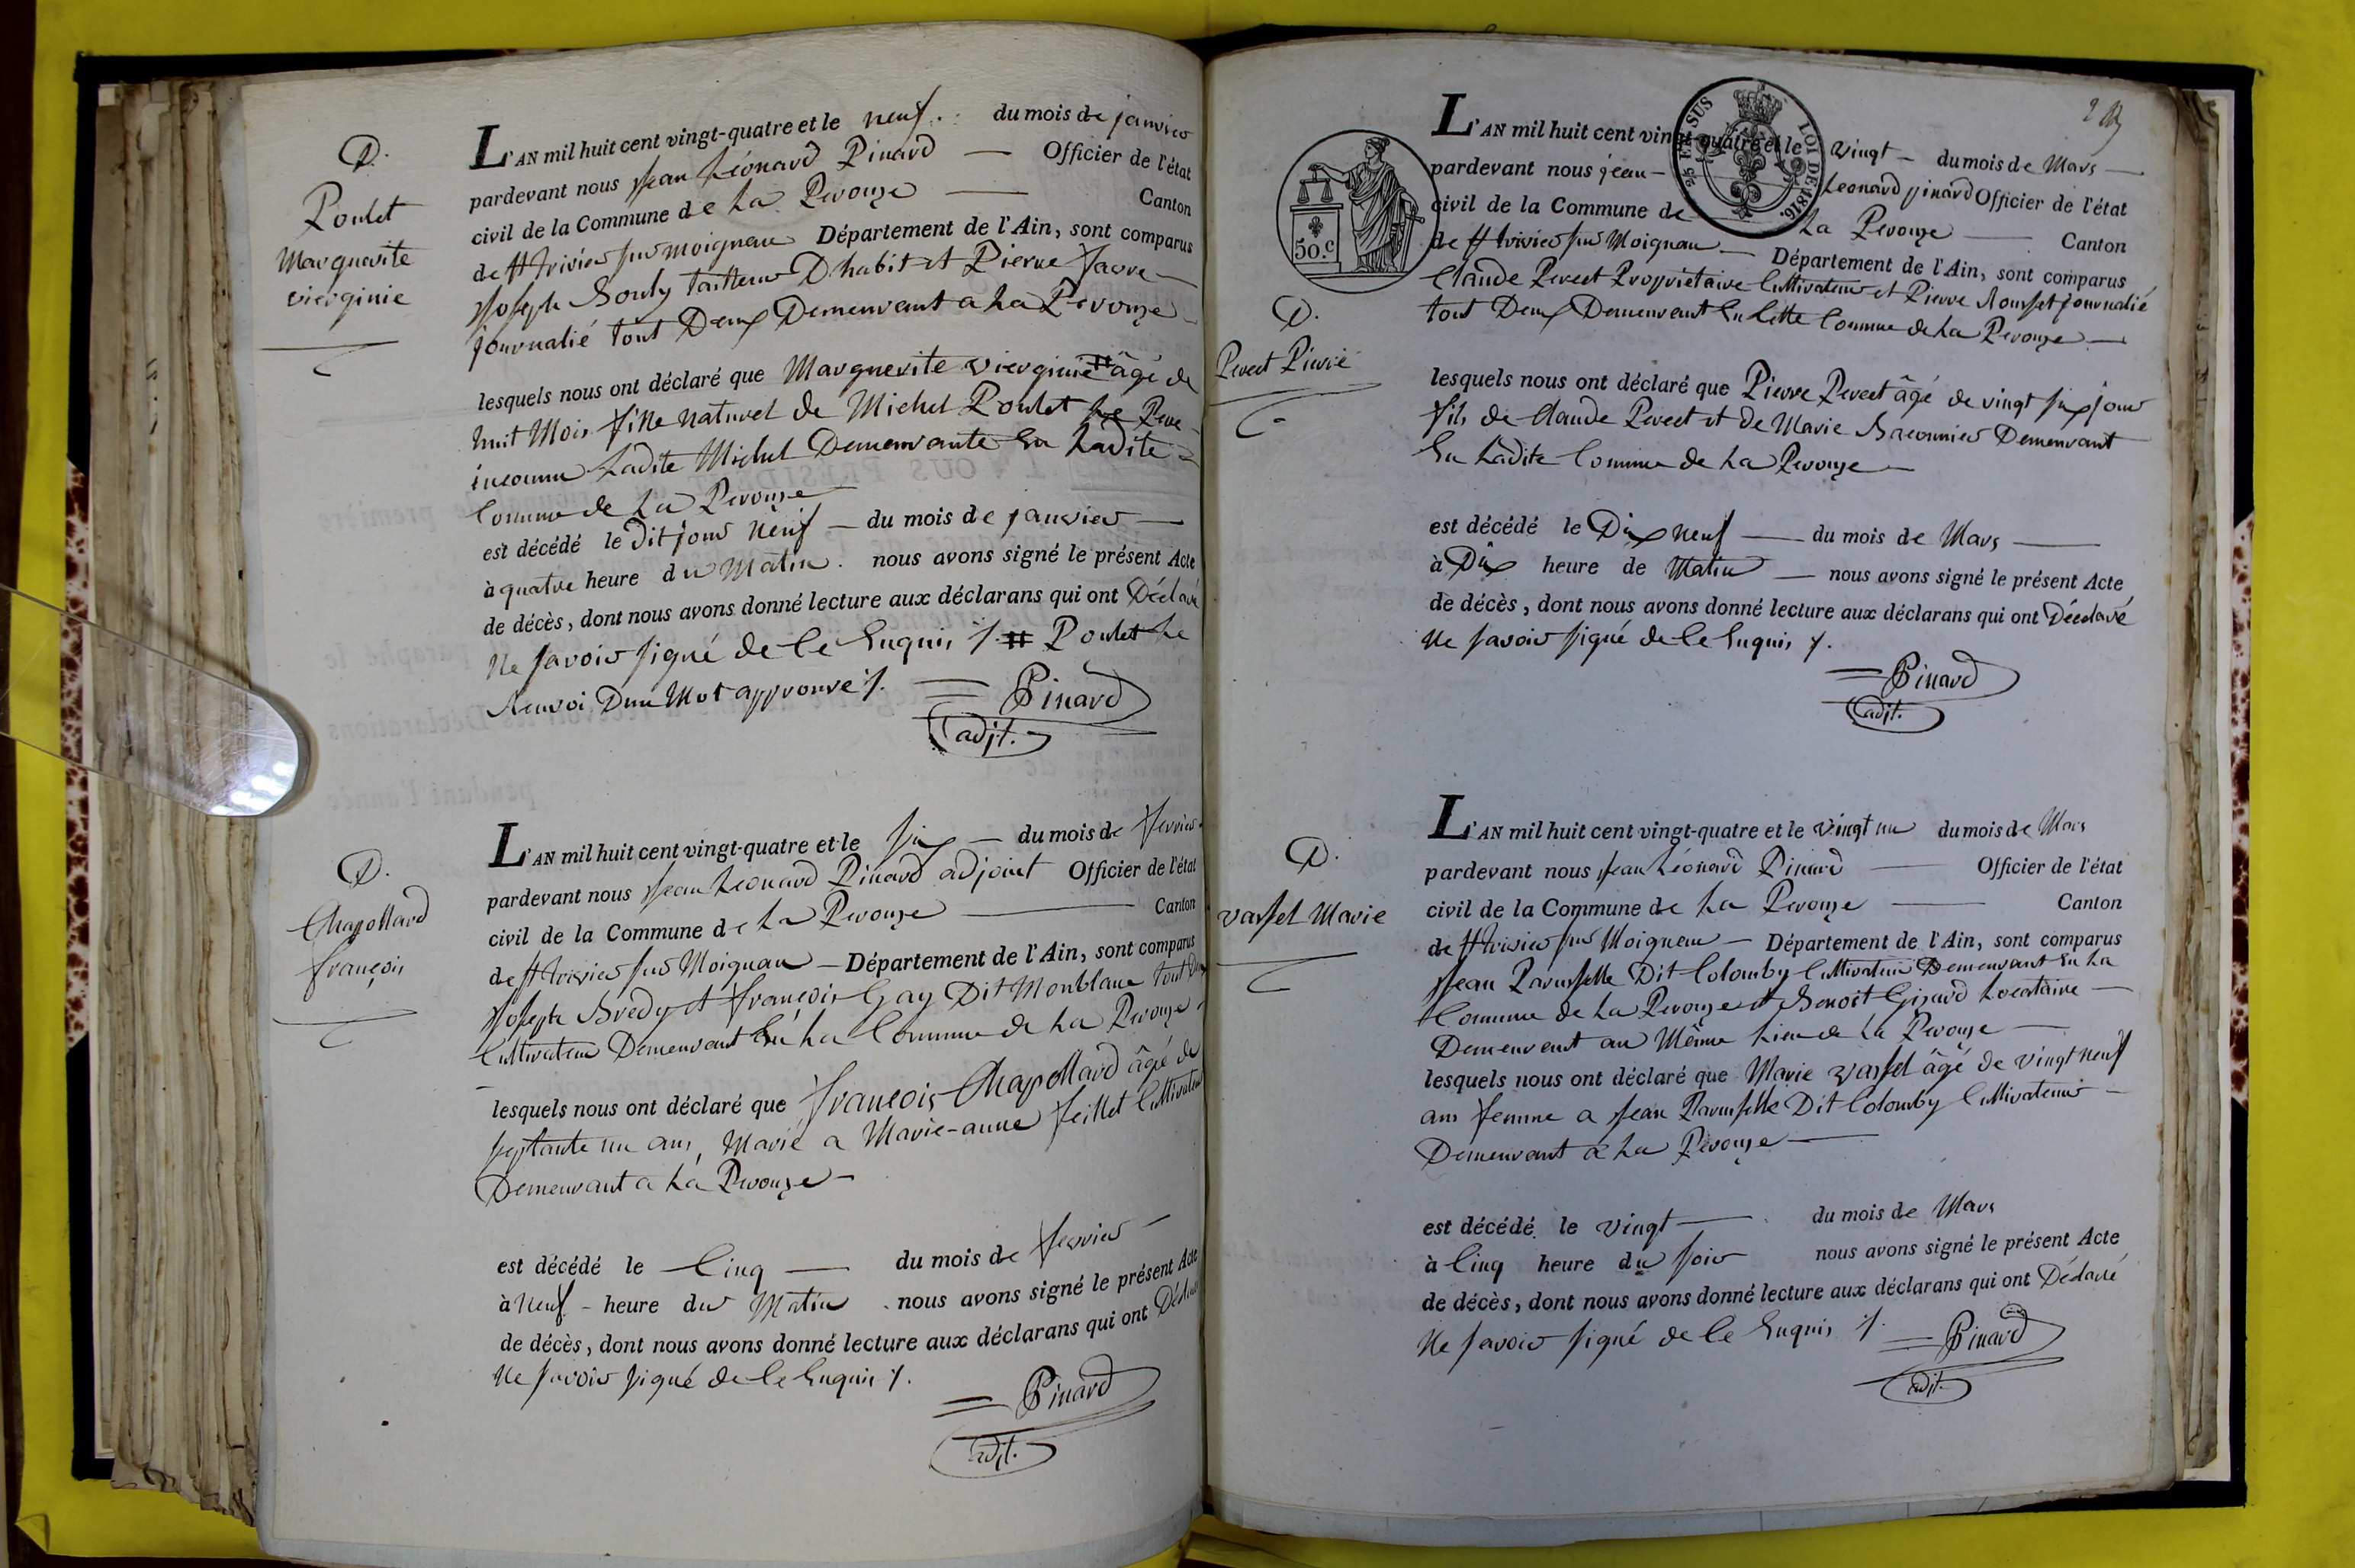 D.
Poulet
Marguerite
vierginie
L'AN mil huit cent vingt-quatre et le neuf. du mois de janvier
pardevant nous Jean Léonard Pinard — Officier de l'état
civil de la Commune de La Perouze — Canton
de St trivier sur moigneau Département de l'Ain, sont comparus
Joseph Bouly tailleur D'habit et Pierre Favre —
journalié tout Deux Demeurant a La Perouze —
lesquels nous ont déclaré que Marguerite vierginie # âgé de
huit Mois fille naturel de Michel Poulet Le Pere
inconnu Ladite Michel Demeurante En Ladite
Commune de La Perouze
est décédé le Dit jour neuf — du mois de janvier —
à quatre heure du Matin. nous avons signé le présent Acte
de décès, dont nous avons donné lecture aux déclarans qui ont Déclaré
Ne savoir signé de Ce Enquis /. # Poulet Le
Renvoi Dun Mot approuvé /.
Pinard
adjt.
D.
Chapollard
françois
L'AN mil huit cent vingt-quatre et le six — du mois de fevrier
pardevant nous Jean Leonard Pinard adjoint Officier de l'état
civil de la Commune de La Perouze — Canton
de St trivier sur Moignau — Département de l'Ain, sont comparus
Joseph Bredy et françois Gay Dit Monblanc tout Deux
Cultivateur Demeurant En La Commune de La Perouze
lesquels nous ont déclaré que françois Chapollard âgé de
septante un ans, Marié a Marie-anne feillet Cultivateur
Demeurant a La Perouze —
est décédé le Cinq — du mois de fevrier —
à Neuf - heure du Matin . nous avons signé le présent Acte
de décès, dont nous avons donné lecture aux déclarans qui ont Déclaré
Ne savoir signé de Ce Enquis /.
Pinard
adjt.
25 EN SUS
LOI DE 1816.
50.c
D.
Perret Pierre
L'AN mil huit cent vingt-quatre et le vingt — du mois de Mars —
pardevant nous jean — Leonard pinard Officier de l'état
civil de la Commune de La Perouze — Canton
de St trivier sur Moignau — Département de l'Ain, sont comparus
Claude Perret Propriétaire Cultivateur et Pierre Rousset journalié
tout Deux Demeurant En Cette Commune de La Perouze —
lesquels nous ont déclaré que Pierre Perret âgé de vingt six jour
fils de Claude Perret et de Marie Demeurant
En Ladite Commune de La Perouze —
est décédé le Dix neuf — du mois de Mars —
à Dix heure de Matin — nous avons signé le présent Acte
de décès, dont nous avons donné lecture aux déclarans qui ont Déclaré
Ne savoir signé de Ce Enquis /.
Pinard
adjt.
D.
vassel Marie
L'AN mil huit cent vingt-quatre et le vingt un du mois de Mars
pardevant nous Jean Léonard Pinard — Officier de l'état
civil de la Commune de La Perouze — Canton
de St trivier sur Moigneau — Département de l'Ain, sont comparus
Jean Dit Colomby Cultivateur Demeurant En La
Commune de La Perouze et Benoit Girard Locataire —
Demeurant au Même Lieu de La Perouze —
lesquels nous ont déclaré que Marie vassel âgé de vingt neuf
ans femme a Jean Dit Colomby Cultivateur —
Demeurant a La Perouze —
est décédé le vingt — du mois de Mars
à Cinq heure du soir nous avons signé le présent Acte
de décès, dont nous avons donné lecture aux déclarans qui ont Déclaré
Ne savoir signé de Ce Enquis /.
Pinard
adjt.